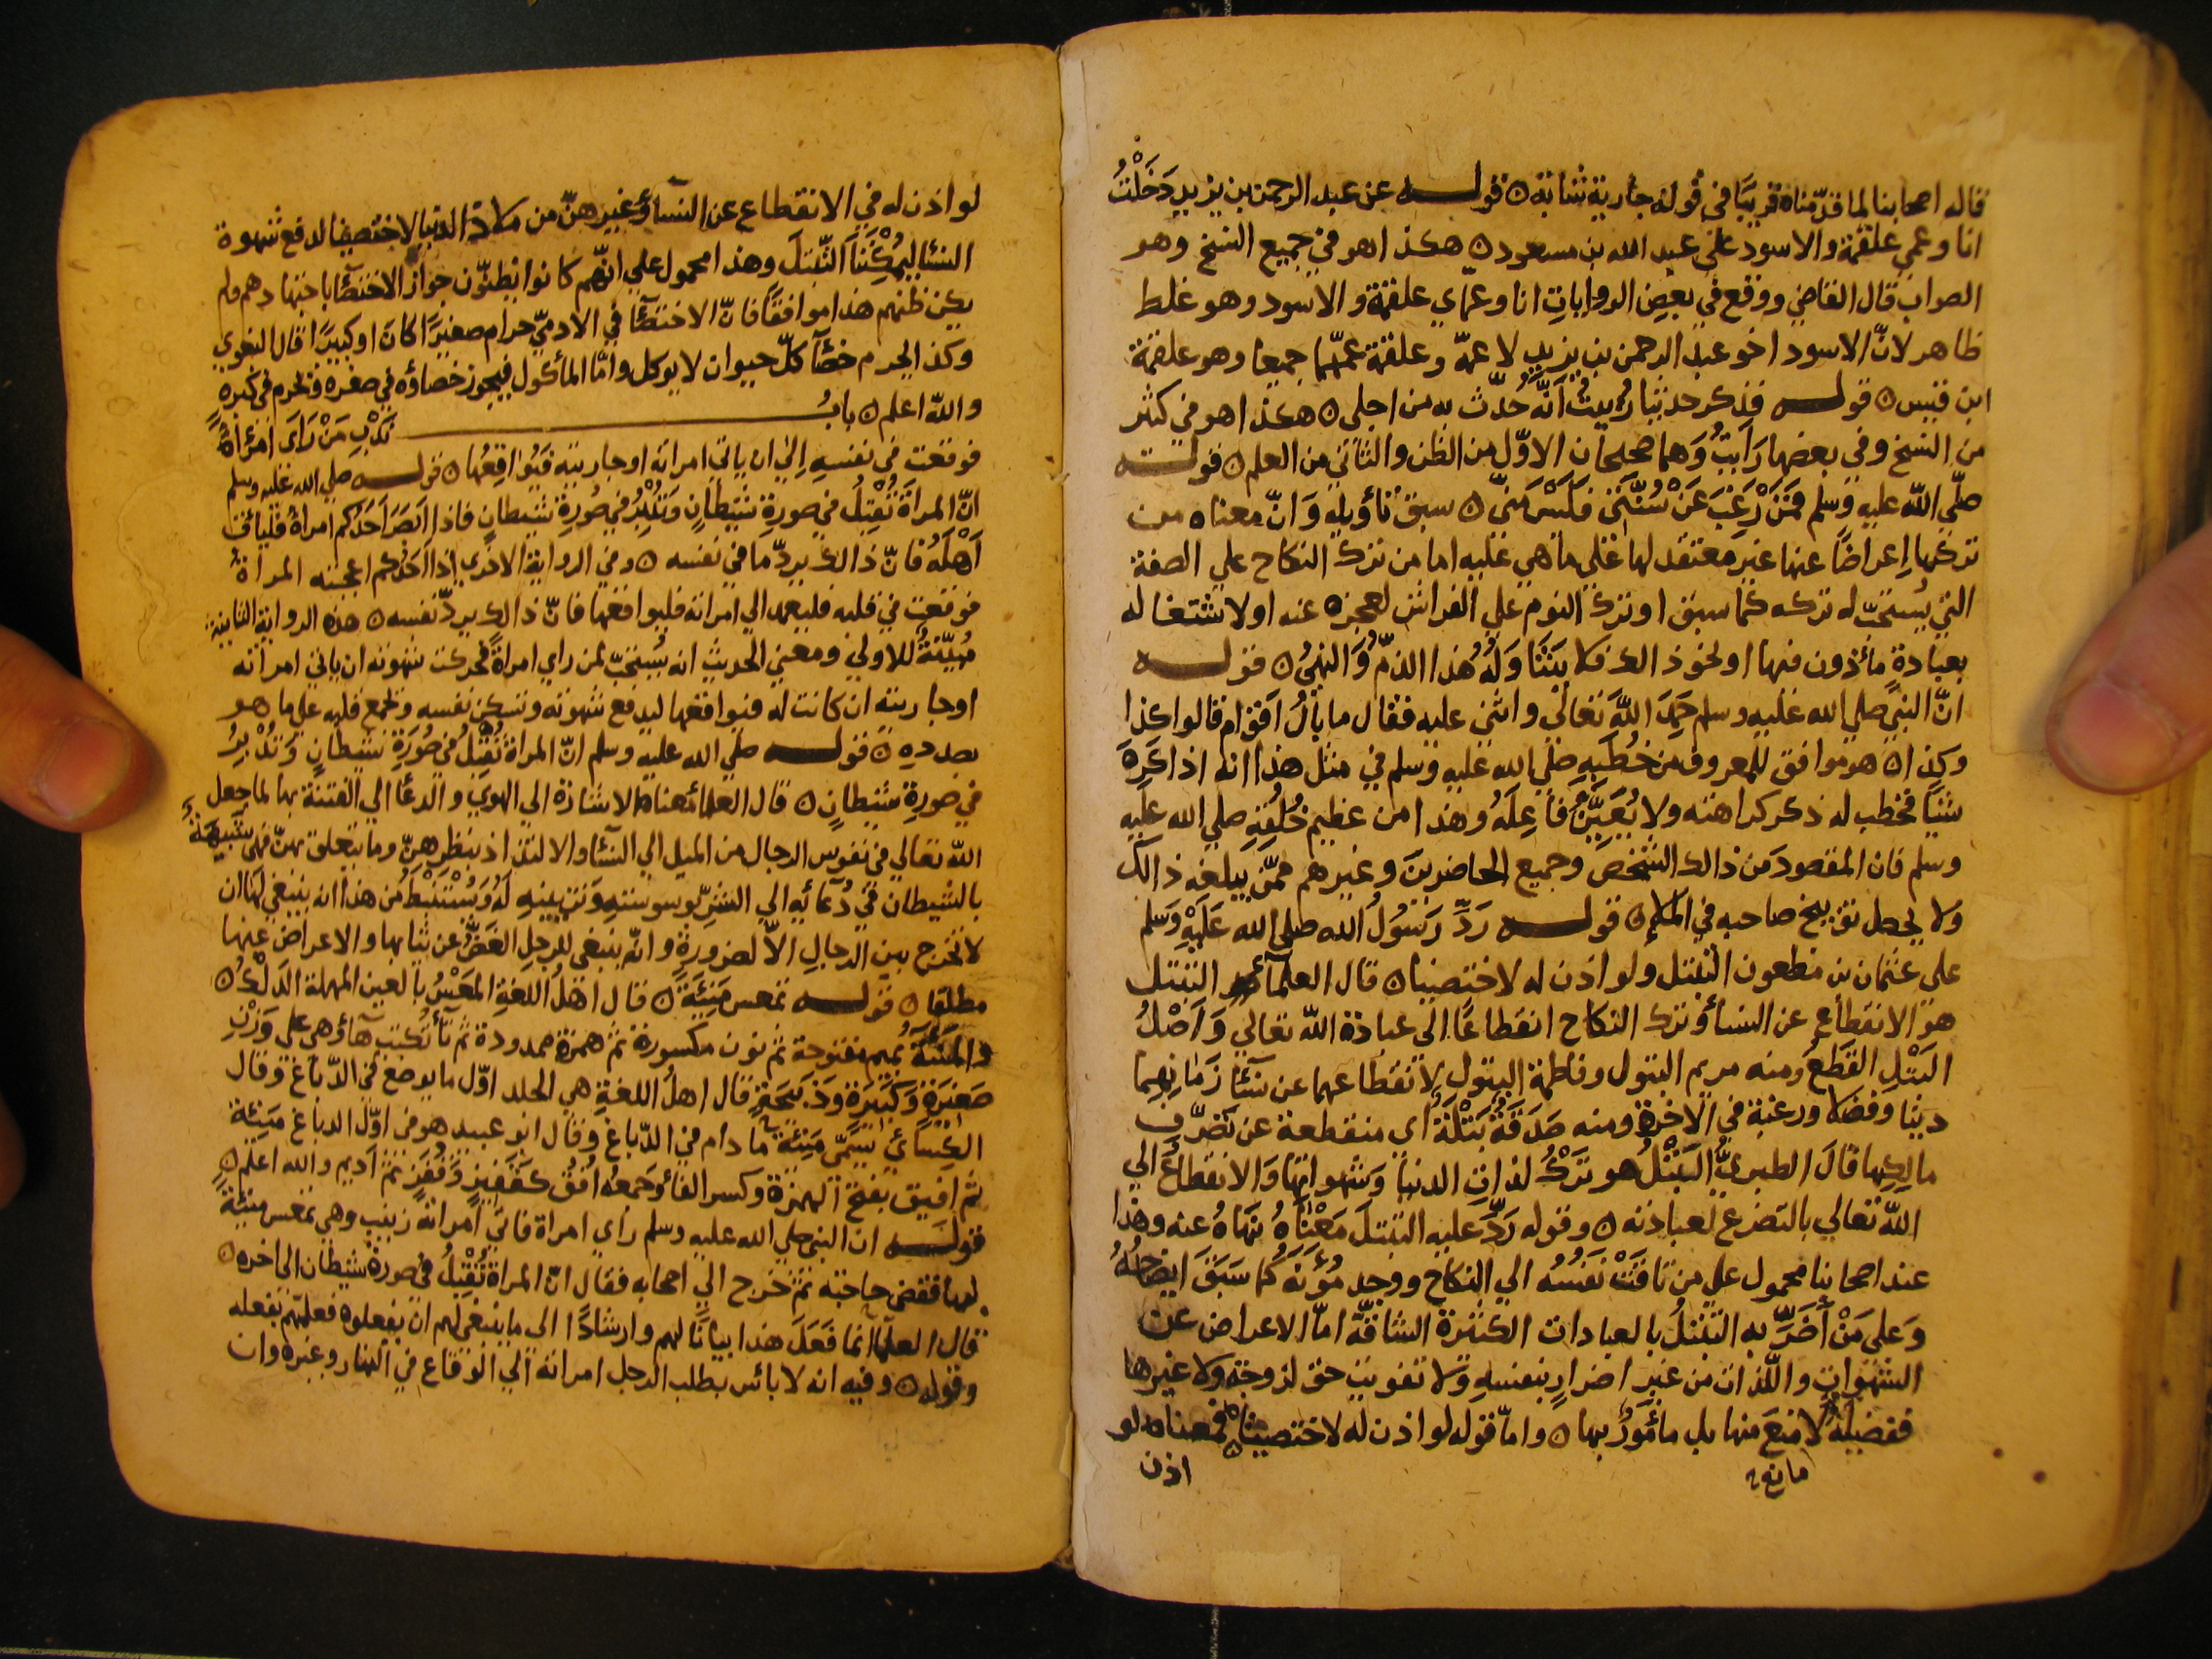 قاله اصحابنا لما قدّمناه قريبًا في قوله جارية شابة ۞ قولــــه عن عبد الرحمن بن يزيد دَخَلْتُ
انا وعمي علقمة والاسود علي عبد الله بن مسعود ۞ هكذا هو في جميع النسخ وهو
الصواب قال القاضي ووقع في بعض الروايات انا وعماي علقمة والاسود وهو غلط
ظاهر لانّ الاسود اخو عبد الرحمن بن يزيد لا عمّه وعلقمة عمّهما جميعا وهو علقمة
ابن قيس ۞ قولــــه فذكر حديثا رُئِيتُ اَنَّه حُدّث به من اجلي ۞ هكذا هو في كثير
من النسخ وفي بعضها رَاَيتُ وَهما صحيحان الاوّل من الظن والثاني من العلم ۞ قولــــه
صلّي الله عليه وسلم فَمَنْ رَغِبَ عَنْ سُنَّتي فَلَيْسَ مَنّي ۞ سبق تأويله وَانّ معناه من
تركها اِعراضًا عنها غير معتقد لها علي ما هي عليه اما من ترك النكاح علي الصفة
التي يُستحَبّ له تركه كما سبق او ترك النوم علي الفراش لعجزه عنه او لاشتغاله
بعبادةٍ مأذون فيها او نحو ذالك فلا يتنَاوَلُهُ هذا الذمُّ وَالنهيُ ۞ قولــــه
انّ النبيَّ صلي الله عليه وسلم حَمِدَ اللهَ تعالي واثني عليه فقال ما بالُ اَقوام قالوا كذا
وكذا ۞ هو موافق للمعروف من خُطَبِه صلي الله عليه وسلم في مثل هذا انه اذا كَرِهَ
شيًا فخطب له ذكر كراهته ولا يُعَيِّنُ فاعِلَهُ وهذا من عظيم خُلُقِهِ صلي الله عليه
وسلم فان المقصود من ذالك الشخص وجميع الحاضرين وغيرهم ممّن يبلغه ذالك
ولا يحصل توبيخ صاحبه في الملإ ۞ قولــــه رَدَّ رَسُولُ الله صلي الله عَلَيْهِ وَسَلم
علي عثمان بن مظعون التبتل ولو اذن له لاختصينا ۞ قال العلمآء التبتل
هو الانقطاع عن النسأ وترك النكاح انقطاعًا الي عبادة الله تعالي وَاَصْلُ
البَتْلِ القَطعُ ومنه مريم البتول وفاطمة البتول لانقطاعهما عن نسَأ زمانِهِما
دينًا وَفضلا ورغبة في الآخرة ومنه صَدَقَةٌ بَتْلَةٌ اي منقطعة عن تصَرّف
مالكِها قالَ الطبريُّ التبَتْلُ هو تَرْكُ لذاتِ الدنيا وَشهواتِها وَالانقطاعُ الي
الله تعالي بالتفرغ لعبادته ۞ وقوله رَدَّ عليه التبتلَ مَعْنَاهُ نهَاهُ عنه وهذا
عند اصحابنا محمول علي من تاقَتْ نَفسُهُ الي النكاح ووجد مُؤَنَه كما سَبَقَ ايضاحُهُ
وَعلي مَنْ اَضَرَّ به التبتّلُ بالعبادات الكثيرة الشاقَّة امّا الاعراض عن
الشهوات واللّذات من غير اضرارٍ بنفسهِ وَلا تفويت حق لزوجة ولا غيرها
ففضيلةٌ لا منعَ منها بل مأمُورٌ بها ۞ وامّا قوله لو اذن له لاختصينا فمعناه لو
مانع
اذن
لو اذن له في الانقطاع عن النسآ وغيرهنّ من ملاذ الدنيا لاختصينا لدفع شهوة
النسَأ ليُمْكِنَنا التّبَتلَ وهذا محمول علي انّهم كانوا يظنّون جواز الاختصَأ باجتهادهم ولم
يكن ظنهم هذا موافقًا فانّ الاختصَأ في الادميّ حرام صغيرًا كانَ او كبيرًا قال البغوي
وكذا يحرم خصآ كلّ حيوان لا يوكل وامّا المأكول فيجوز خصاؤه في صغره وَيحرم في كبره
والله اعلم ۞ بابُ ــــــــــ نَدْبِ مَنْ رَاَي امْرَأَةً
فوقعت في نفسهِ اِلي ان ياتي امراته او جاريته فيُوَاقِعُها ۞ قولــــه صلي الله عليه وسلم
انّ المرأَةَ تُقْبِلُ في صورةِ شَيْطانٍ وَتُدْبِرُ في صورةِ شيطانٍ فاذا اَبصَرَ اَحَدُكم امراةً فليأتِ
اَهْلَهُ فانّ ذالك يردّ ما في نفسه ۞ وفي الرواية الاخري اذا اَحَدُكم اعجبته المرأةُ
فوقعت في قلبه فليعمد الي امراته فليواقعها فانّ ذالك يردّ نفسه ۞ هذه الرواية الثانية
مُبيّنةٌ للاولي ومعني الحديث انه يُستحَبّ لمن راي امراةً فتحركت شهوته ان ياتي امراته
او جاريته ان كانت له فيواقعها ليدفع شهوته وتسكن نفسه وتجمع قلبه علي ما هو
بصدده ۞ قولــــه صلي الله عليه وسلم انّ المراة تُقبِلُ في صُورَةِ شيطانٍ وَتُدْبِرُ
في صورةِ شيطانٍ ۞ قال العلما معناه الاشارة الي الهوي والدعا الي الفتنة بها لما جعل
الله تعالي في نفوس الرجال من الميل الي النسَأ والالتذاذ بنظرهنّ وما يتعلق بهنّ فهي شَبِيهَةٌ
بالشيطان في دُعائهِ الي الشرّ بوسوستهِ وَتزيينهِ لهُ وَيُسْتَنبَطُ من هذا انه ينبغي لها ان
لا تخرج بين الرجالِ الاّ لضرورةٍ وانّه ينبغي للرجلِ الغَضُّ عن ثيابها والاعراض عنها
مطلقا ۞ قولــــه تمعس مَنِيَّةً ۞ قال اهلُ اللغةِ المَعْسُ بالعين المهملة الدَلْكُ ۞
والمَنِيَّةُ بميم مفتوحة ثم نون مكسورة ثم همزة ممدودة ثم تآ تُكتب هآ وَهي علي وَزْنِ
صَغِيرَةٍ وَكَبِيرَةٍ وَذَبيحَةٍ قال اهلُ اللغة هي الجلد اوّل ما يوضع في الدّباغ وقال
الكِسائي يُسَمّي مَنِيئَةً ما دام في الدّباغ وقال ابو عبيد هو في اوّل الدباغ مَنيئة
ثم افيق بفتح الهمزة وكسر الفأ وَجمعهُ اُفُقٌ كقفيزٍ وَقُفُزٍ ثم اَديم والله اعلم ۞
قولــــه ان النبي صلي الله عليه وسلم راي امراة فاتي امراته زينب وهي تمعس منيئةً
لها فقضي حاجته ثم خرج الي اصحابه فقال انّ المراة تُقْبِلُ في صورة شيطان الي اخره ۞
قال العلمآ انما فَعَلَ هذا بيانًا لهم وارشادًا الي ما ينبغي لهم ان يفعلوه فعلّمهم بفعله
وقوله ۞ وفيه انه لا بائس بطلب الرجل امراته الي الوقاع في النهار وغيره وان